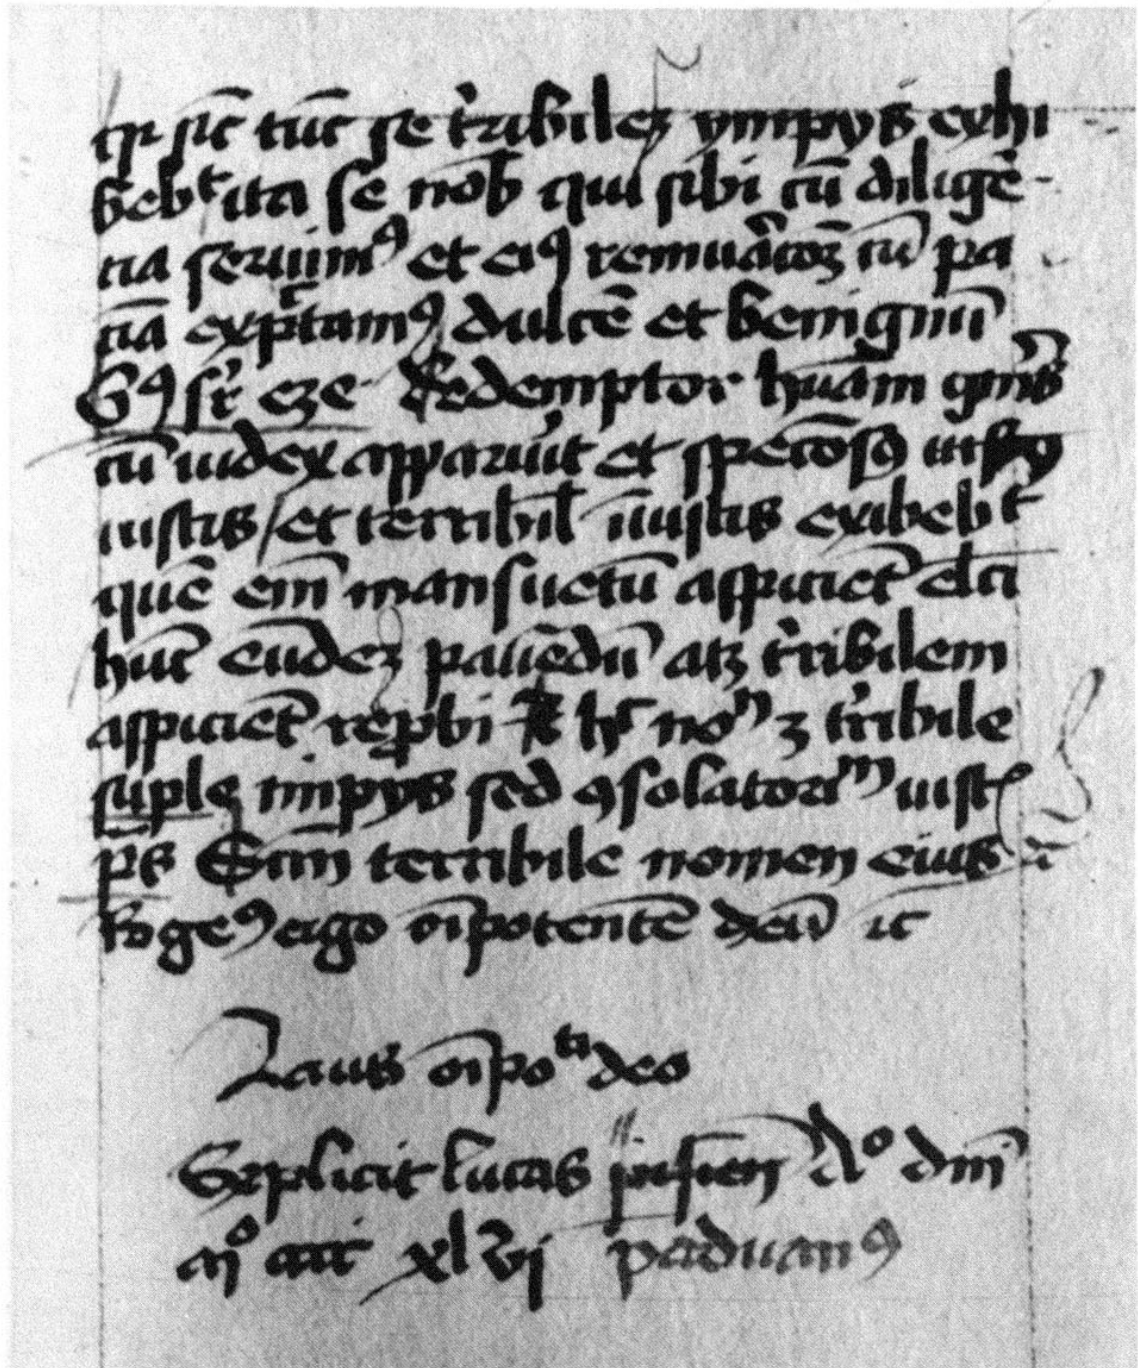 sic tunc se t'ribilez ympijs exhi
beb't ita se nob qui sibi cū diligē-
tia seruim⁹ et ei⁹ remuā'coꝫ cū pa
cīa exp̄ctam⁹ dulcē et benignū
G⁹ sr̄ eze. Redemptor hūani gn̄is
cū iudex apparuit et speciōs⁹
iustis / et terribil iniustis exibeb't
quē em̄ mansuetū aspiciēt elcī
hūc eūdez pauēdū atꝫ t'ribilem
aspiciēt rep̄bi hͨ noⁿ ꝫ t'ribile
suple impijs sed ꝯsolatoriᵐ iust
ps Scm̄ terribile nomen eius
Roge⁹ ergo oīpotentē deū ꝛc
Laus oīpoᵗⁱ deo
Explicit lucas dn̄i
mº xlvi paduan⁹